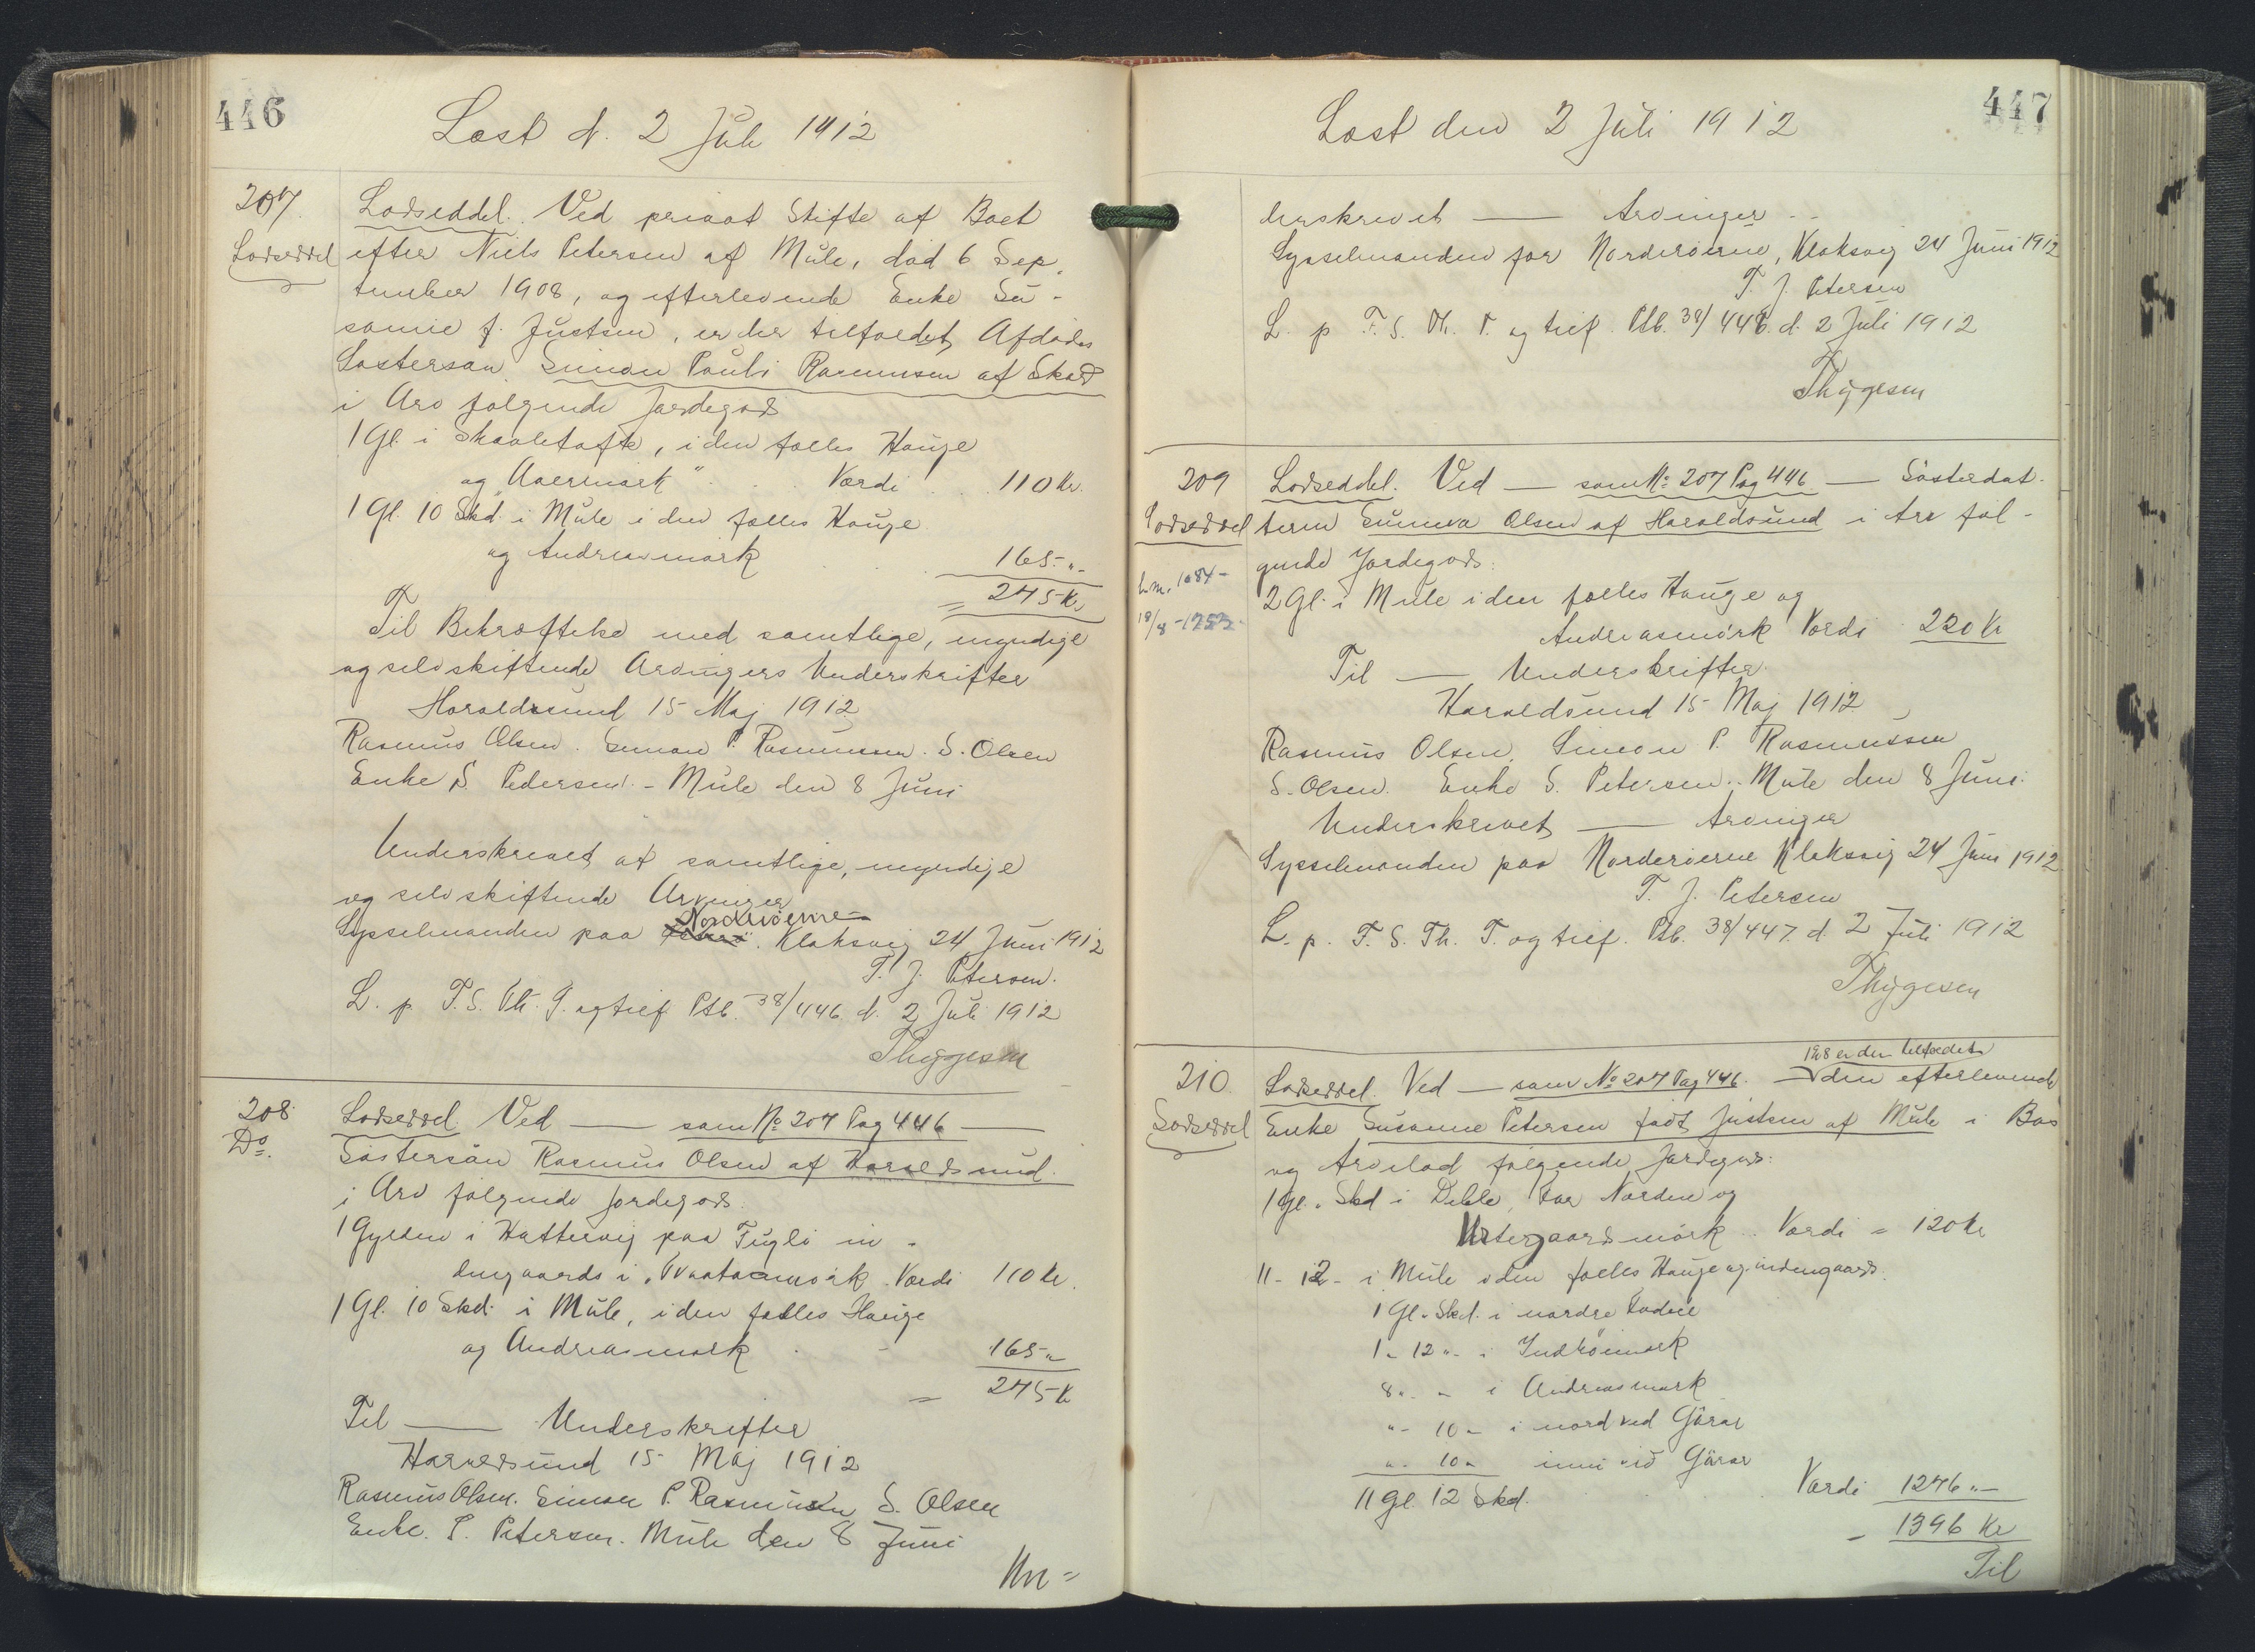 446
Læst d. 2 Juli 1912
207.
Lodseddel
Lodseddel. Ved privat Skifte af Boet
efter Niels Petersen af Mule, død 6 Sep-
tember 1908, og efterlevende Enke Su-
sanne f. Justsen, er der tilfaldet Afdødes
Søstersøn Simon Pauli Rasmussen af Skad
i Arv følgende Jordegods
1 Gl. i Skaaletofte, i den fælles Hauge
og Aaermørk" . . Værdi . . 110 Kr.
1 Gl. 10 Skd. i Mule i den fælles Hauge
og Andreasmørk . . . 165 "-
= 275 Kr
Til Bekræftelse med samtlige, myndige
og selvskiftende Arvingers Underskrifter
Haraldsund 15 Maj 1912
Rasmus Olsen. Simon P. Rasmussen. S. Olsen
Enke S. Pedersen. - Mule den 8 Juni
Underskrevet af samtlige, myndige
og selvskiftende Arvinger
Norderøerne
Sysselmanden paa Klaksvig 24 Juni 1912
T. J. Petersen.
L. p. F. S. Th. T. og tilf Ptb. 38/446 d. 2 Juli 1912
Thygesen
208
Do.
Lodseddel Ved — som No 207 Pag 446 —
Søstersøn Rasmus Olsen af Haraldsund.
i Arv følgende Jordegods.
1 Gylden i Hattervig paa Fuglø in-
dengaards i Værdi 110 Kr.
1 Gl. 10 Skd. i Mule, i den fælles Hauge
og Andreasmørk . - 165 "
= 275 Kr
Til — Underskrifter
Haraldsund 15 Maj 1912
Rasmus Olsen. Simon P. Rasmussen S. Olsen
Enke. S. Petersen. Mule den 8 Juni
Un=
447
Læst den 2 Juli 1912
derskrevet — Arvinger -
Sysselmanden for Norderøerne, Klaksvig 24 Juni 1912
T. J. Petersen
L. p F. S. Th. T. og tilf. Ptb. 38/446. d. 2 Juli 1912
Thygesen
209
Lodseddel
18/8 -1253-
Lodseddel. Ved — som No 207 Pag 446 — Søsterdat-
teren Sunneva Olsen af Haraldsund i Arv føl-
gende Jordegods:
2 Gl. i Mule i den fælles Hauge og
Andreasmørk Værdi 220 Kr
Til — Underskrifter.
Haraldsund 15 Maj 1912
Rasmus Olsen, Simon P. Rasmussen
S. Olsen. Enke S. Petersen. - Mule den 8 Juni.
Underskrevet — Arvinger
Sysselmanden paa Norderøerne Klaksvig 24 Juni 1912
T. J. Petersen
L. p. F. S. Th. T. og tilf. Ptb. 38/447 d. 2 Juli 1912
Thygesen
210.
Lodseddel
1908 er der tilfaldet
Lodseddel. Ved — som No 207 Pag 446. — den efterlevende
Enke Susanne Petersen født Justsen af Mule i Bos
og Arvelod følgende Jordegods:
1 Gl. " Skd i Deble, har Norden og
Ustergaardsmørk .. Værdi = 120 Kr
11 - 12 - i Mule i den fælles Hauge og indengaards.
1 Gl. " Skd. i nordre
1 " 12 " - i Indhöimørk
8 " - " i Andreasmørk
" - 10 " i nord ved Gårar
" - 10 " inni vid Gårar
11 Gl 12 Skd. . . . Værdi 1276 "-
= 1396 Kr
Til